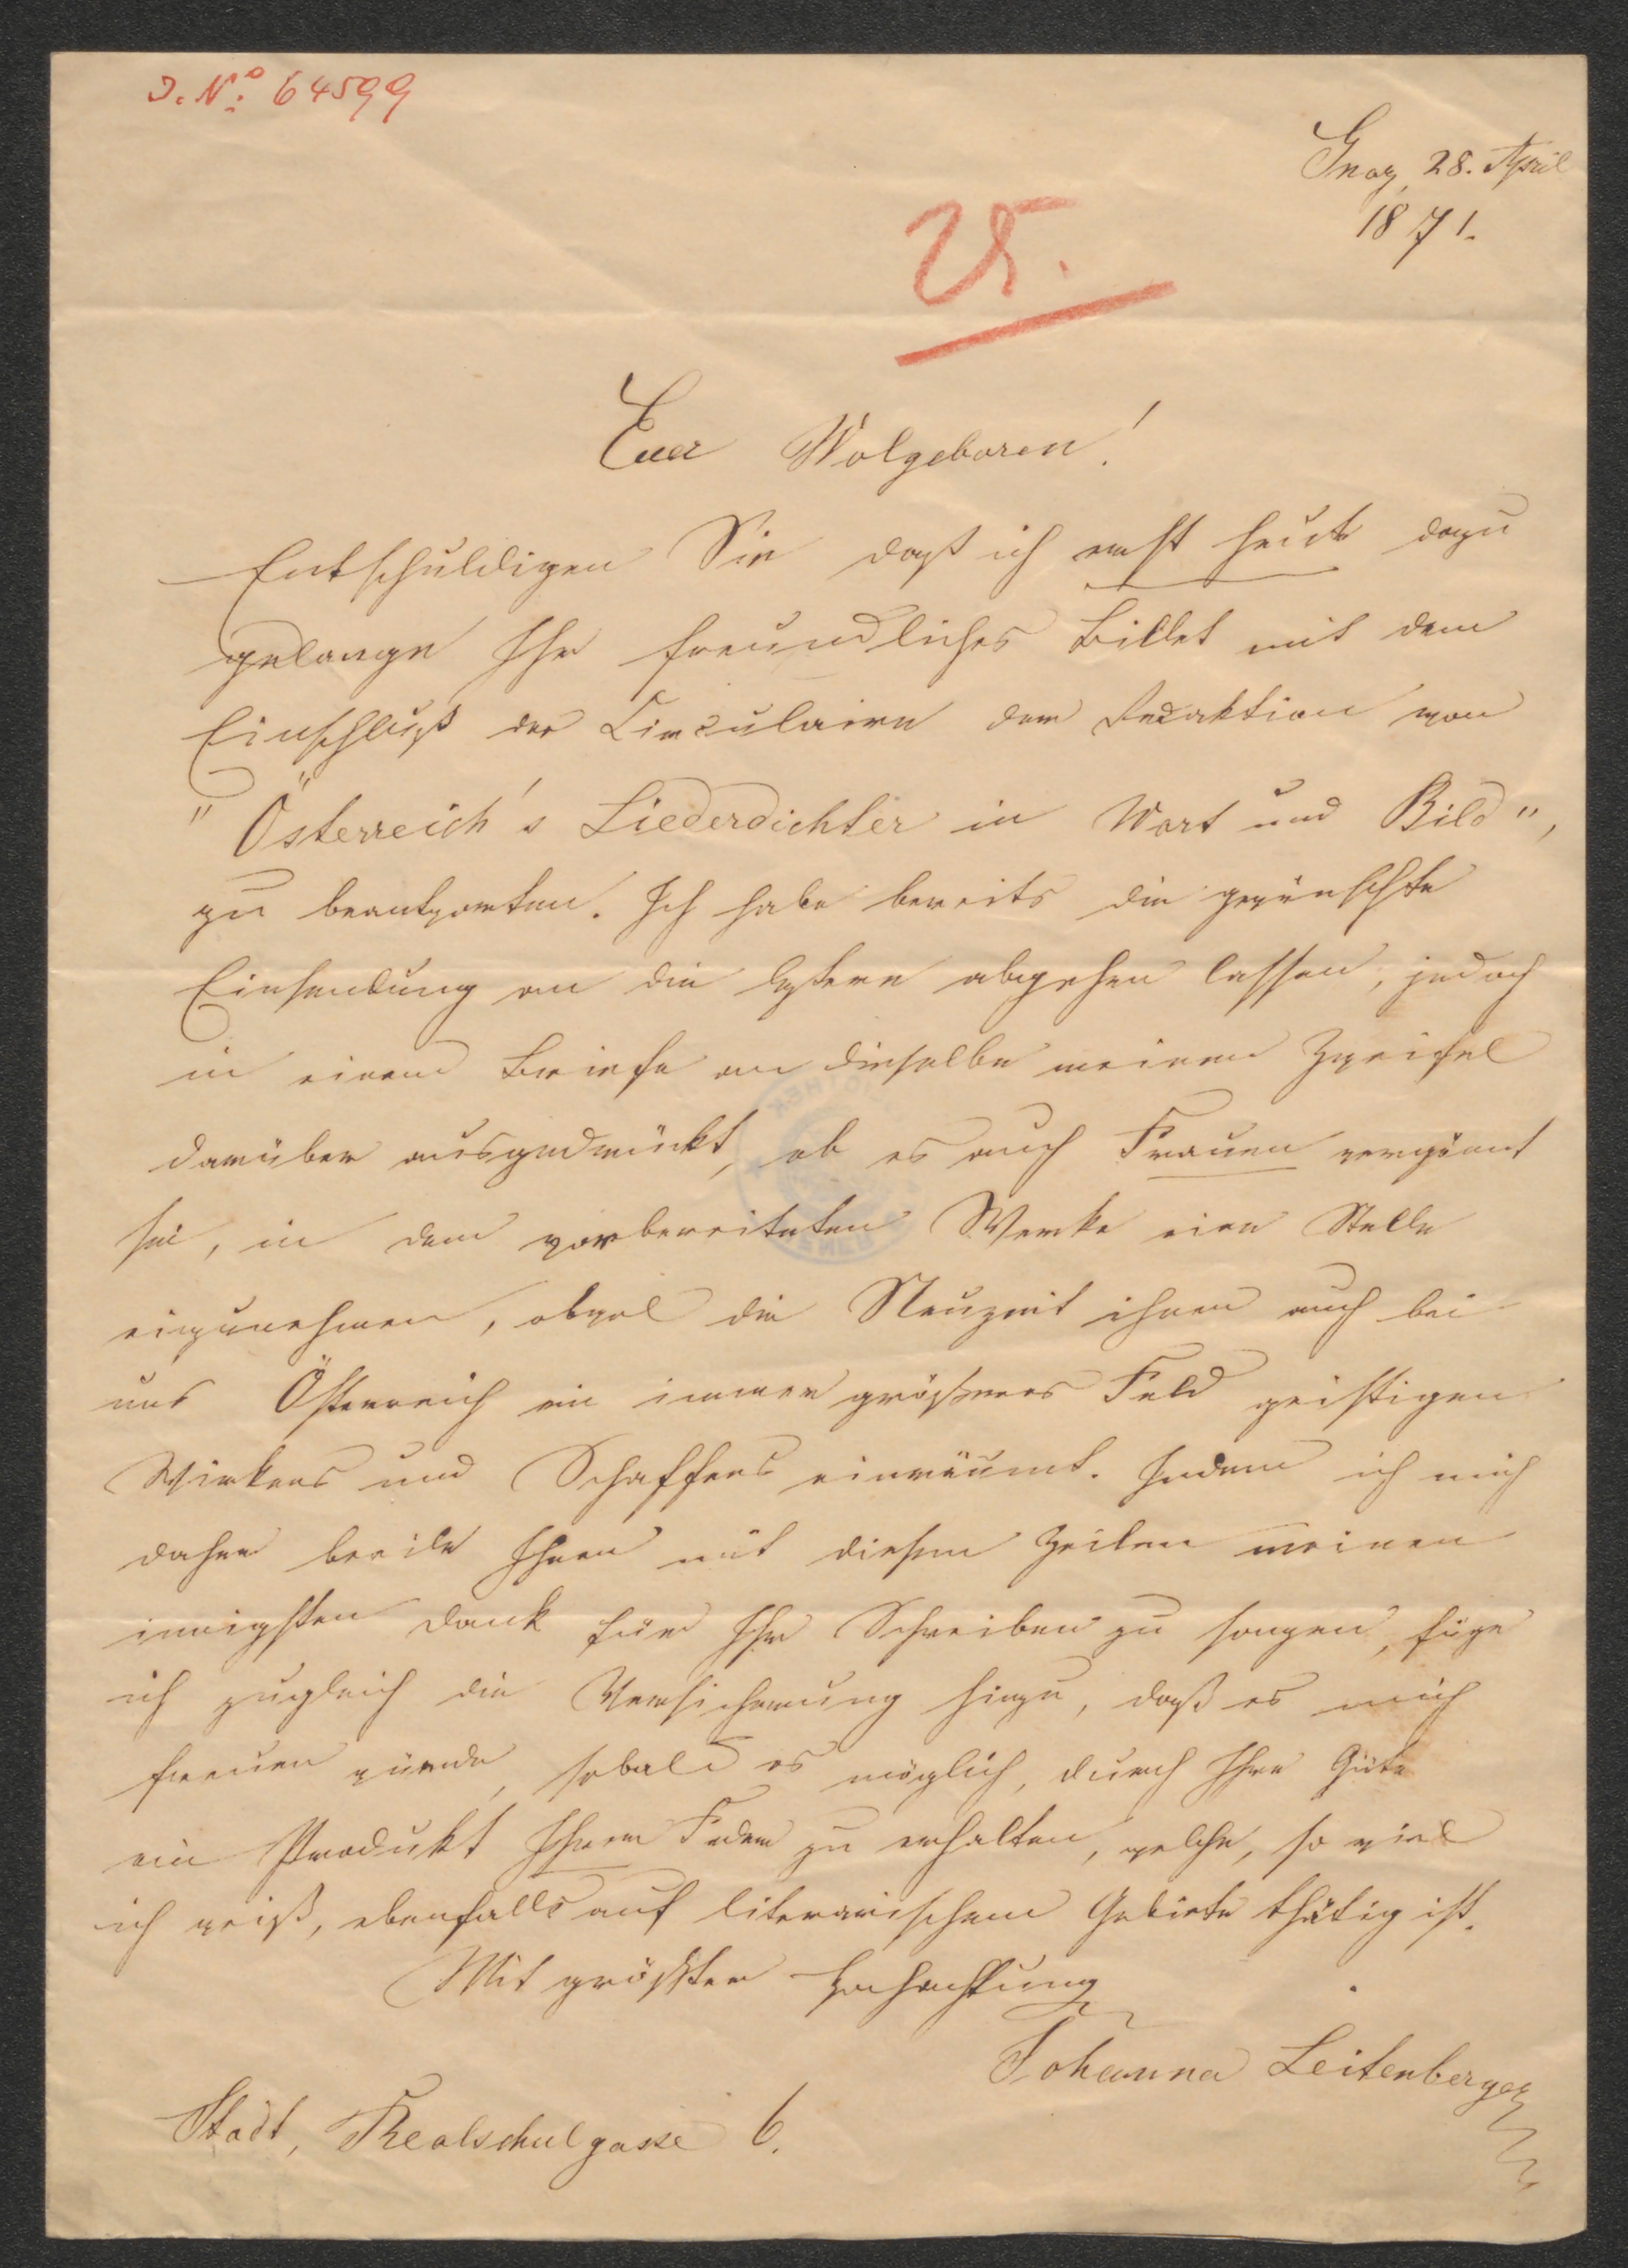 J. Nº 64599
Graz, 28. April
1871.
25.
Euer Wolgeboren!
Entschuldigen Sie daß ich erst heute dazu
gelange Ihr freundliches Billet mit dem
Einschluß des Circulaires der Redaktion von
"Österreich's Liederdichter in Wort und Bild",
zu beantworten. Ich habe bereits die gewünschte
Einsendung an die letztere abgehen lassen, jedoch
in einem Briefe an dieselbe meinen Zweifel
darüber ausgedrückt, ob es auch Frauen vergönnt
sei, in dem vorbereiteten Werke eine Stelle
einzunehmen, obwol die Neuzeit ihnen auch bei
uns Österreich ein immer größeres Feld geistigen
Wirkens und Schaffens einräumt. Indem ich mich
daher beeile Ihnen mit diesen Zeilen meinen
innigsten Dank für Ihr Schreiben zu sagen, füge
ich zugleich die Versicherung hinzu, daß es mich
freuen würde, sobald es möglich, durch Ihre Güte
ein Produkt Ihrer Feder zu erhalten, welche, so viel
ich weiß, ebenfalls auf literarischem Gebiete thätig ist.
Mit größter Hochachtung
Johanna Leitenberger
Stadt, Realschulgasse 6.